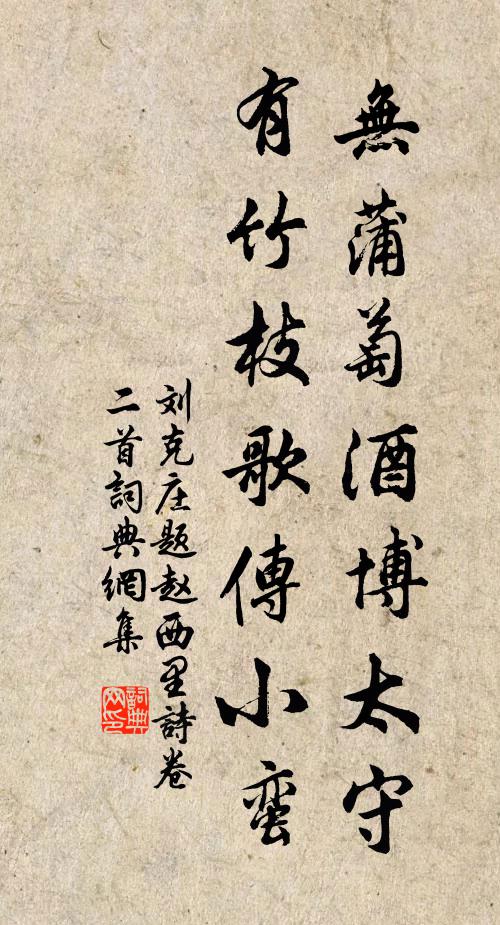 無蒲萄酒博太守
有竹枝歌傳小蛮
刘克庄题赵西里詩卷
二首詞典網集
詞典网印